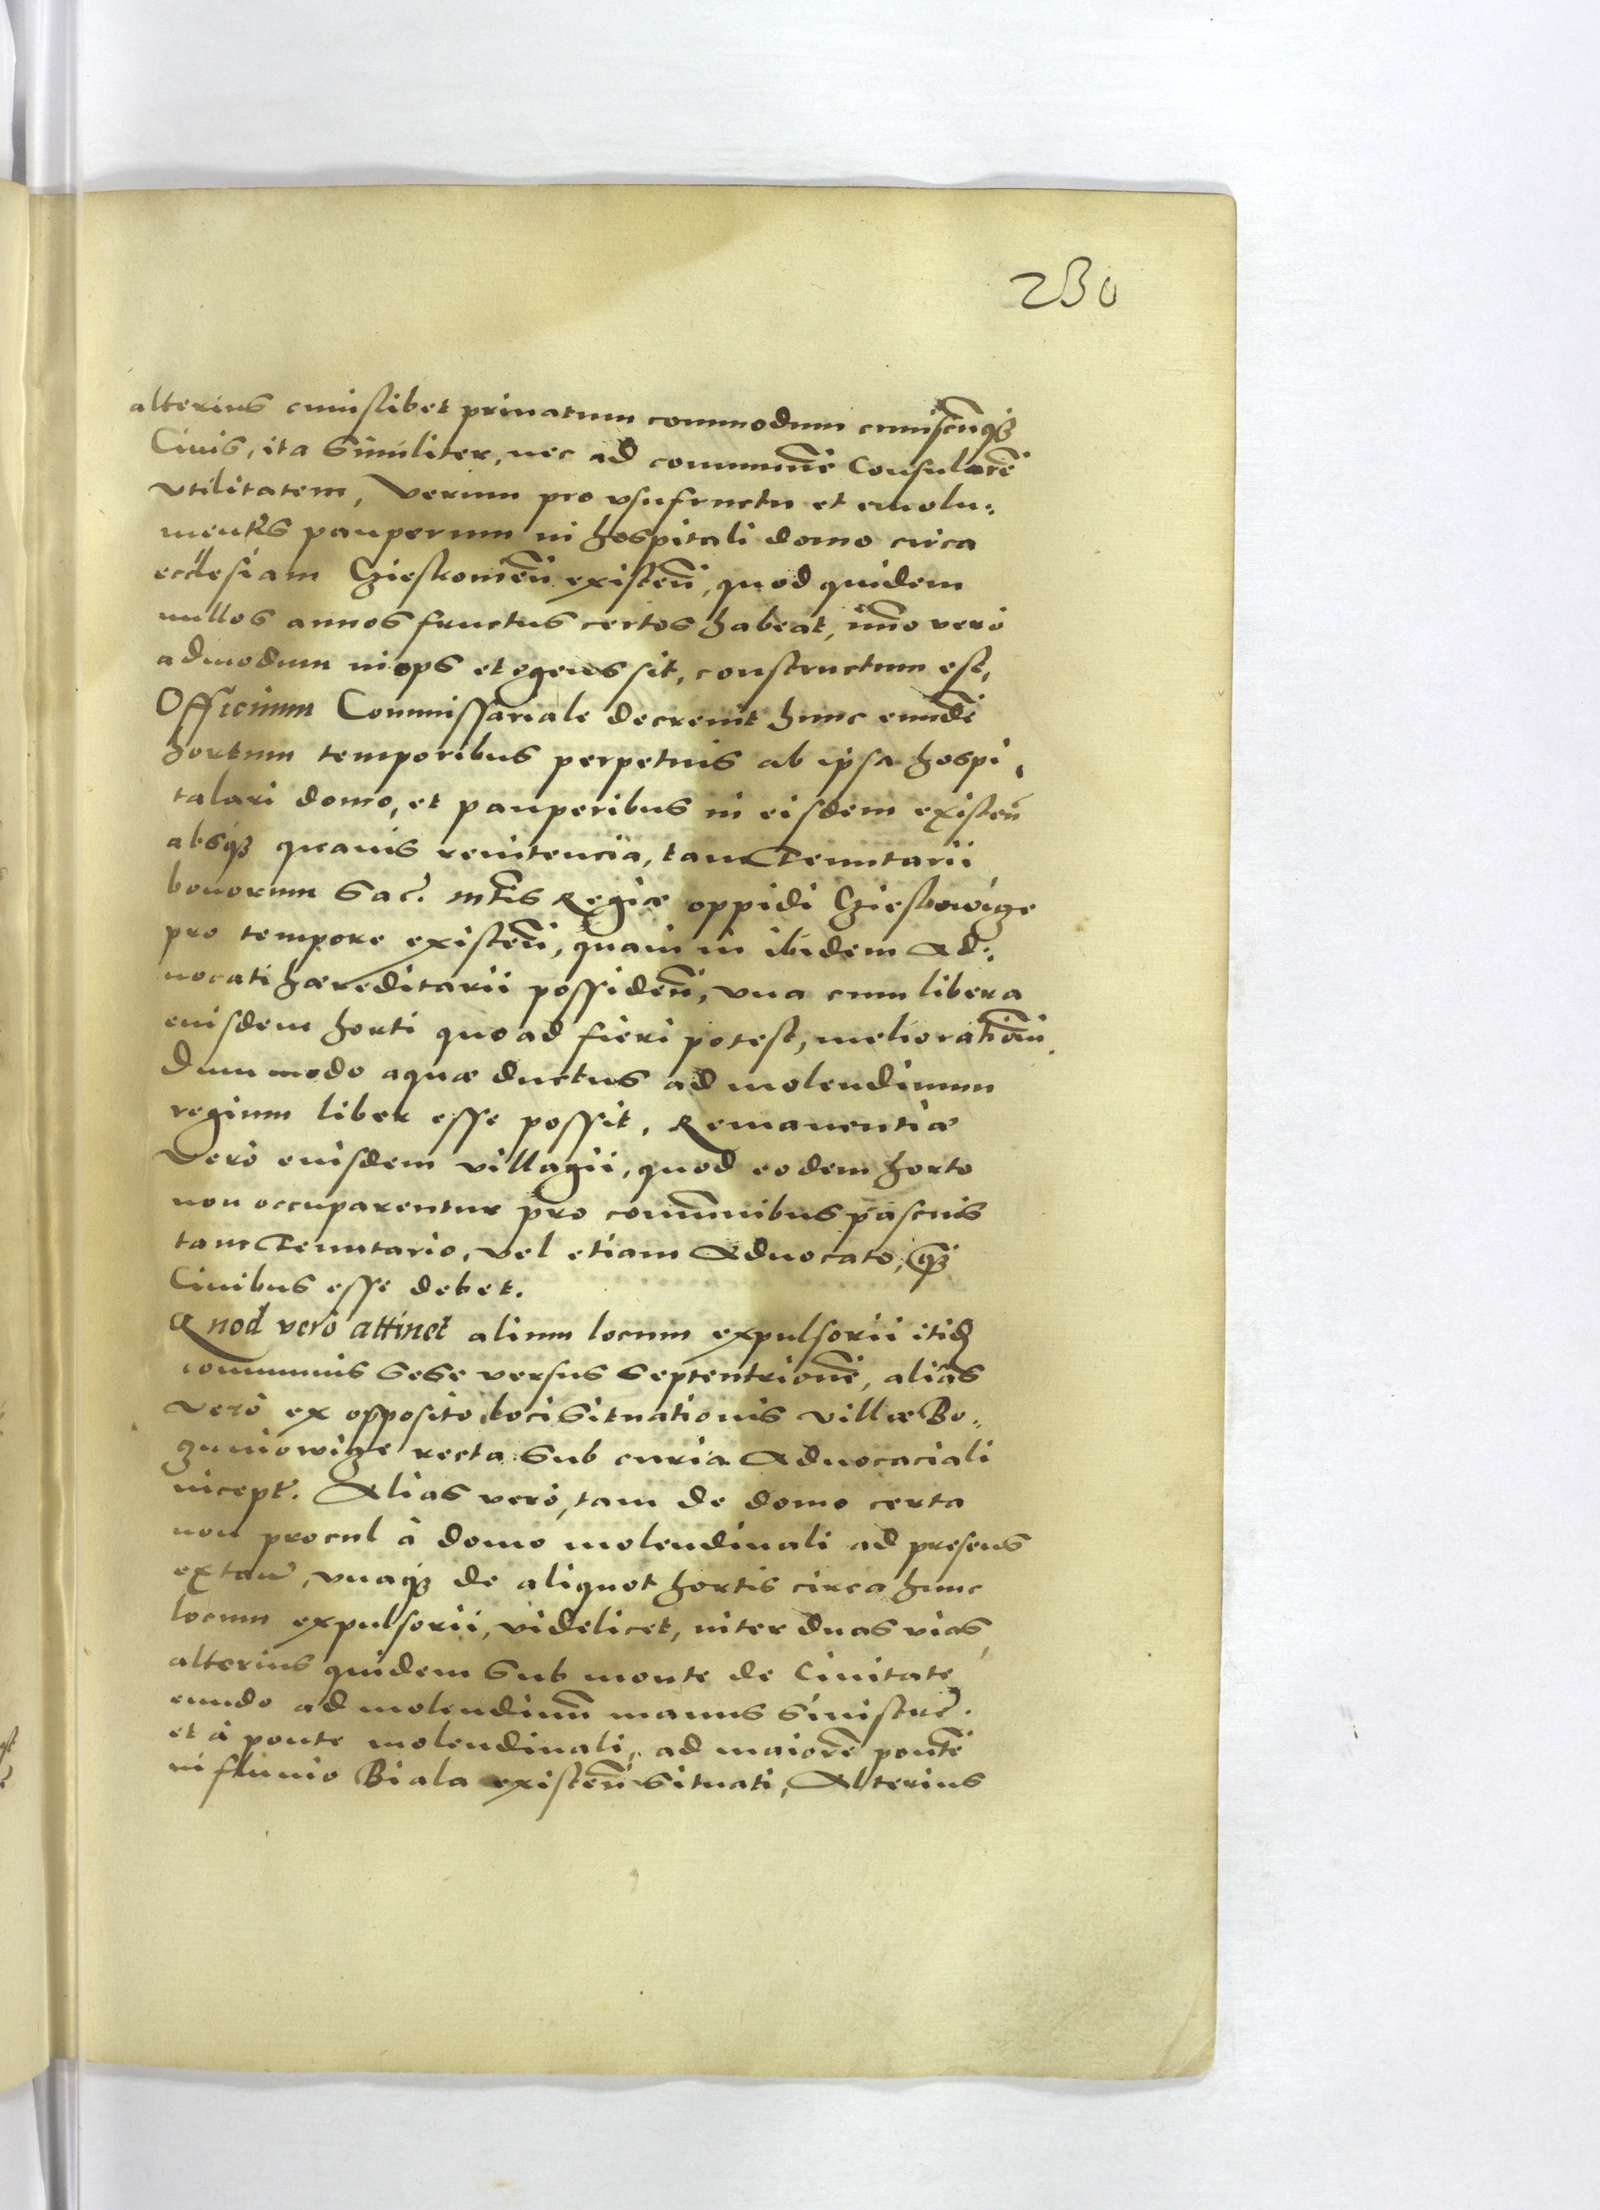 230
alterius cuiuslibet priuatum commodum cuiuscūqȝ
Ciuis, ita similiter, nec ad communē Consularē
vtilitatem, Verum pro vsufructu et emolu:
mentis pauperum in hospitali domo circa
ecclesiam Cieskouień existeñ, quod quidem
nullos annos fructus certos habeat, im̄o vero
admodum inops et egens sit, constructum est,
Officium Commissariale decreuit hunc eundē
hortum temporibus perpetuis ab ipsa hospi,
talari domo, et pauperibus in eisdem existeñ
absqȝ quauis renitencia, tam Tenutarii
bonorum Sac. Mtis Regiæ oppidi Czieskowicze
pro tempore existeñ, quam in ibidem Ad:
uocati hæreditarii possideñ, vna cum libera
eiusdem horti quoad fieri potest, melioratiōn
Dummodo aquæ ductus ad molendinum
regium liber esse possit, Remanentiæ
Vero eiusdem villagii, quod eodem horto
non occuparentur pro com̄unibus pascuis
tam Tenutario, vel etiam Aduocato, qȝ
Ciuibus esse debet.
Quod vero attinet alium locum expulsorii itidē
communis sese versus Septentrionē, alias
Vero ex opposito loci situationis villæ Bo:
guniowicze recta sub curia Aduocaciali
incept. Alias vero, tam de domo certa
non procul à domo molendinali ad presens
extañ, vnaqȝ de aliquot hortis circa hunc
locum expulsorii, videlicet, inter duas vias,
alterius quidem sub monte de Ciuitate
eundo ad molendinū manus sinistræ.
et à ponte molendinali, ad maiorē pontē
in fluuio Biala existeñ situati, Alterius